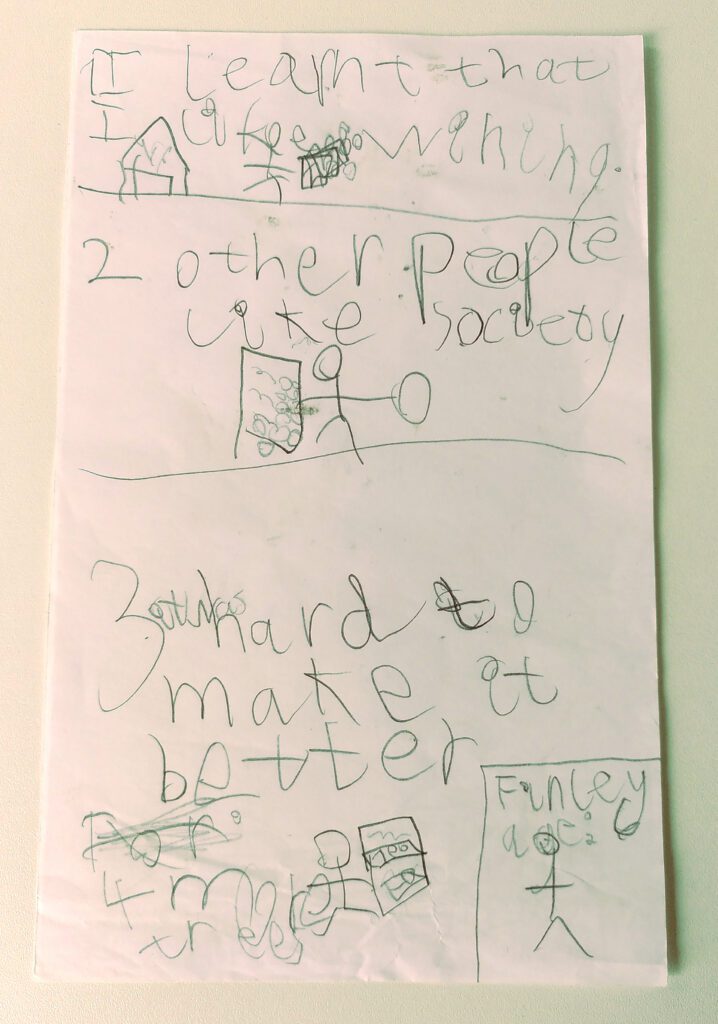 1 I learnt that
I like wining.
2 other people
like society
3 it was hard to
make it
better
For:
4 more
trees
Finley
age: 6